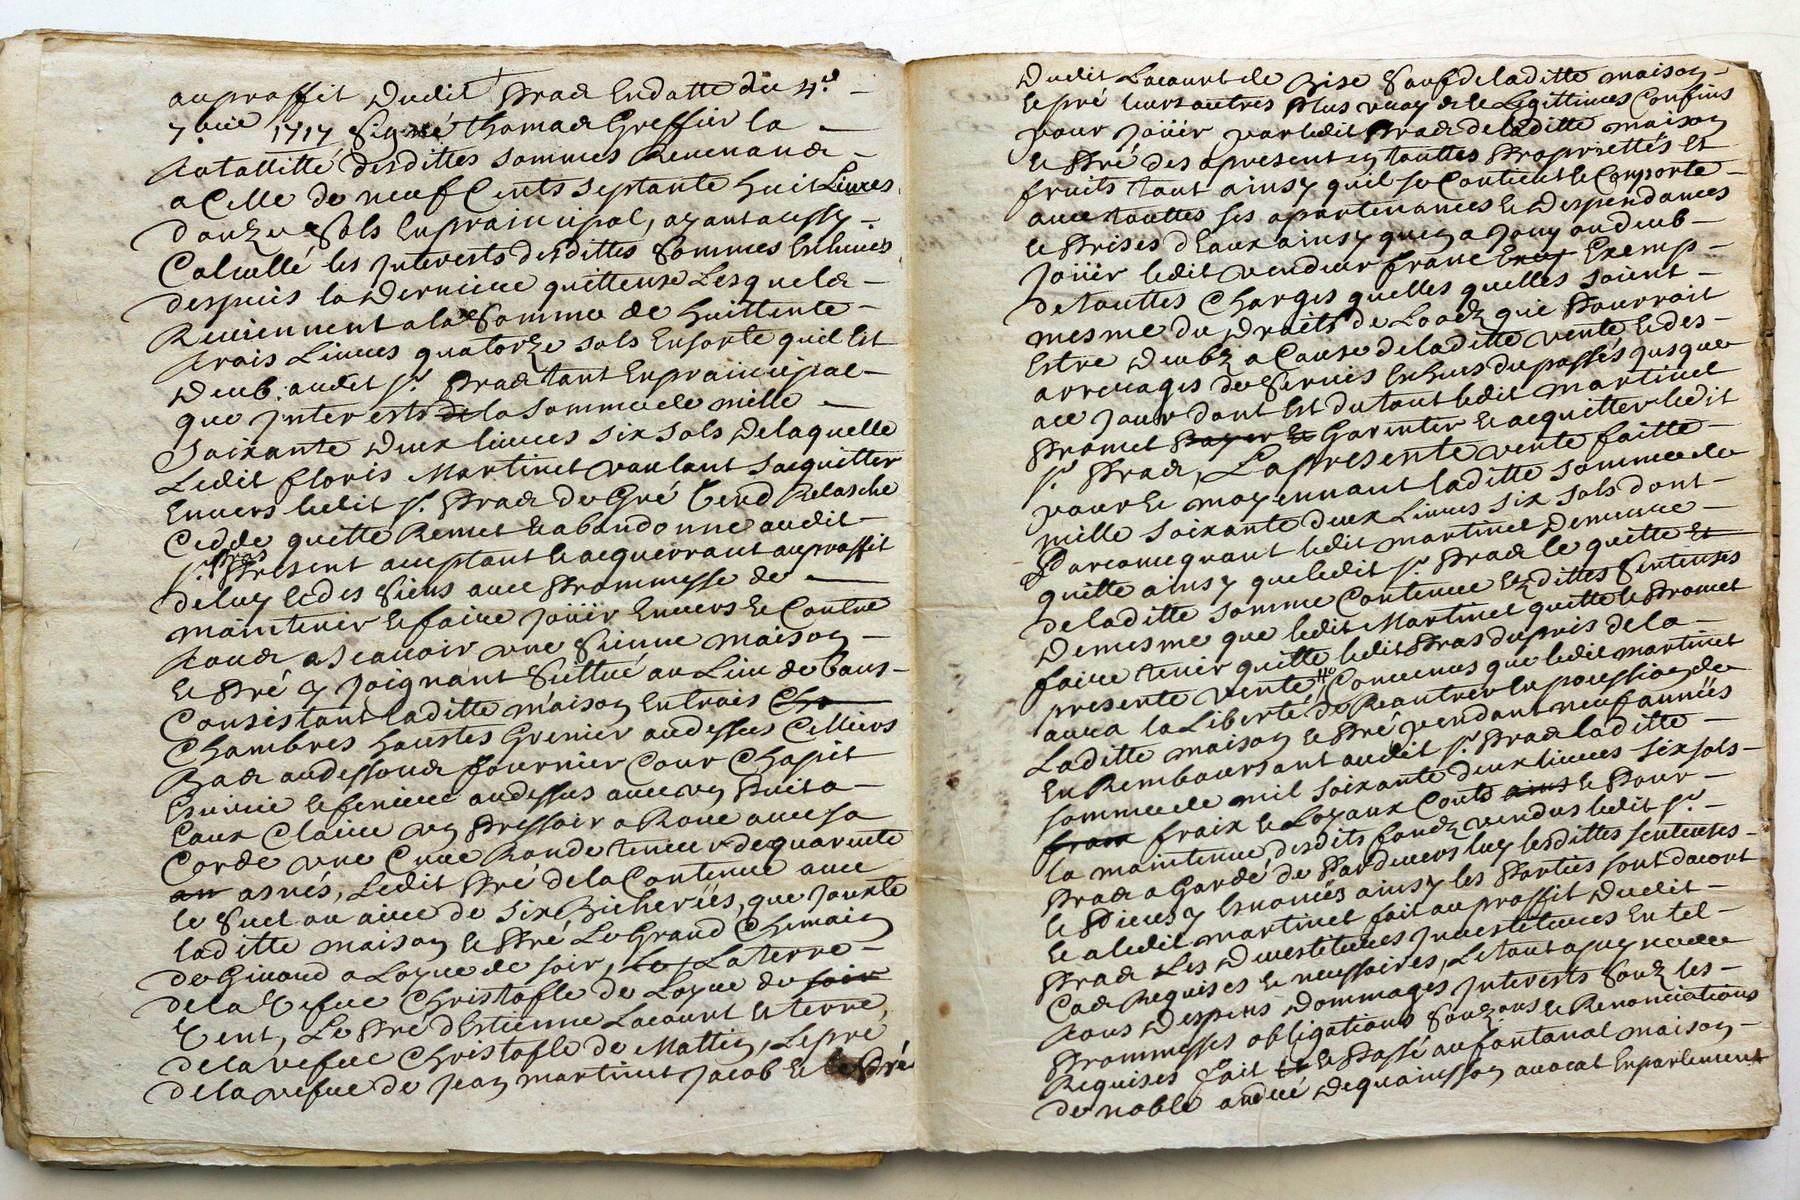 au proffit Dudit Pras En datte du 4e
7bre 1717 Signé thomas Greffier la
totallitté desdittes sommes Reuenans
a Celle de neuf Cents septante huit Liures
douze Sols En principal, ayant aussy
Calcullé les Interests desdittes Sommes Escheues
despuis la Derniere quittense Lesquels
Reuiennent a la Somme de huittente
trois Liures quatorze sols En sorte quil Est
Deub audit sr. Pras tant En principal
que Interests de la somme de mille
soixante Deux liures six sols De laquelle
Ledit floris Martinet voulant sacquitter
Enuers ledit sr. Pras de Gré Vend Relasche
Cedde quitte Remet et abandonne audit
sr. Pras Present acceptant et acquerrant au proffit
de luy et des Siens auec Prommesse de
maintenir et faire Joüir Enuers et Contre
tous a scauoir une Sienne maison
et Pré y Joignant Sittué au Lieu de Vaus
Consistant laditte maison En trois Cha
Chambres hauttes Grenier au dessus Celliers
Bas au dessous fournier Cour Chapit
Escuirie et feniere au dessus auec un Puit a
Eaux Claire un Pressoir a Roue auec sa
Corde une Cuue Ronde teneur de quarente
an asnés, Ledit Pré de la Contenue auec
le Suel ou aire de Six Bicherües, que Jouxte
laditte maison et Pré Le Grand Chemain
de Giuond a Loyse de soir, Les La terre
de la Vefue Christofle de Loyse de soir
Vent, Le Pré d'Estienne Lacourt et terre
de la vefue Christofle de Mattin, Le pré
de la vefue de Jean martinet Jacob et le Pré
Dudit Lacourt de Bise Sauf de laditte maison
et pré leurs autres Plus vray et Legittimes Confins
pour Joüir par ledit Pras de laditte maison
et Pré des apresent en touttes Propriettés et
fruits tout ainsy quil se Contient et Comporte
auec touttes ses apartenances et Despendances
et Prises d'Eaux ainsy quen a Jouy ou deub
Joüir ledit vendeur franc Exep Exemp
de touttes Charges quelles quelles soient
mesme du Droits de Laods que Pourroit
Estre Deubs a Cause de laditte vente et des
arreuages de Seruis Escheus du passés Jusques
a ce Jour dont Est du tout ledit martinet
Promet Payer Et Garentir et acquitter ledit
sr. Pras, La presente vente faitte
pour et moyennant laditte somme de
mille soixante deux Liures six sols dont
Parcomequant ledit martinet Demeure
quitte ainsy que ledit sr. Pras le quitte Et
de laditte somme Contenue Esdittes Sentenses
De mesme que ledit Martinet quitte et Promet
faire tenir quitte ledit Pras du pris de la
presente vente Conuenus que ledit martinet
aura la Liberté de Reantrer En possession de
Laditte maison et Pré pendant neuf années
En Remboursant audit sr. Pras laditte
somme de mil soixante deux liures six sols
frais fraix et Loyaux Couts ains et Pour
la maintenue desdits fonds vendus ledit sr.
Pras a Gardé de Pardeuers luy lesdittes sentenses
et Pieces y Esnoncés ainsy les Parties sont dacort
et a ledit martinet fait au proffit Dudit
Pras Les Deuestitures Inuestitures En tel
Cas Requises et necessaires, Le tout a payne de
tous Despens Dommages Interests Souz les
Prommesses obligations Souzmis et Renonciations
Requises fait Et et Passé au fontanal maison
de noble andré Dequainsson auocat En parlement